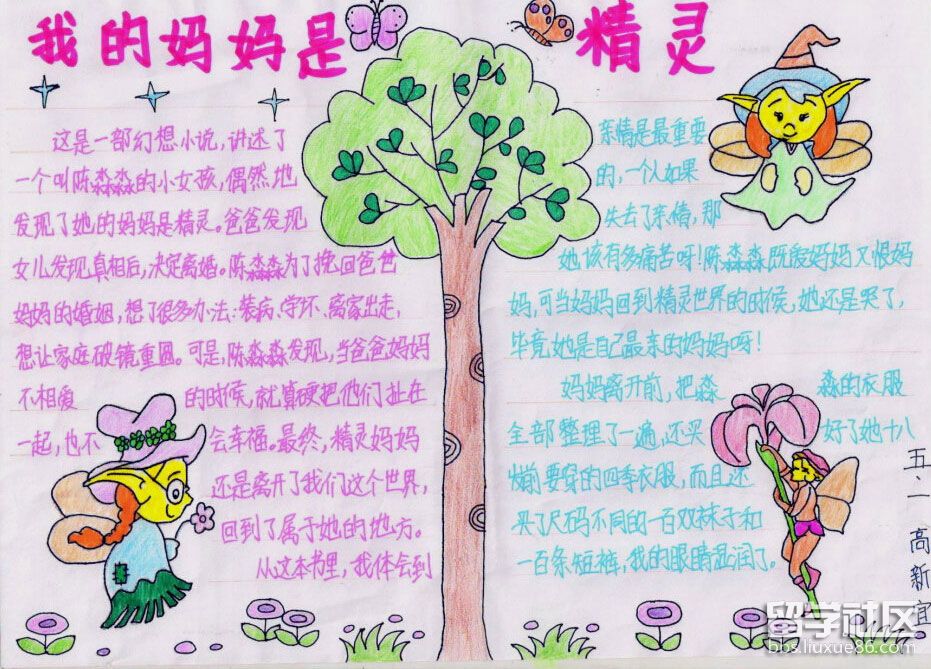 我的妈妈是精灵
这是一部幻想小说，讲述了
一个叫陈淼淼的小女孩，偶然地
发现了她的妈妈是精灵。爸爸发现
女儿发现真相后，决定离婚。陈淼淼为了挽回爸爸
妈妈的婚姻，想了很多办法：装病、学坏、离家出走，
想让家庭破镜重圆。可是，陈淼淼发现，当爸爸妈妈
不相爱的时候，就算硬把他们扯在
一起，也不会幸福。最终，精灵妈妈
还是离开了我们这个世界，
回到了属于她的地方。
从这本书里，我体会到
亲情是最重要
的，一个人如果
失去了亲情，那
她该有多痛苦呀！陈淼淼既爱妈妈又恨妈
妈，可当妈妈回到精灵世界的时候，她还是哭了，
毕竟她是自己最亲的妈妈呀！
妈妈离开前，把淼淼的衣服
全部整理了一遍，还买好了她十八
岁前要穿的四季衣服，而且还
买了尺码不同的一百双袜子和
一百条短裤，我的眼睛湿润了。
五、一高新宜
留学社区
bbs.liuxue86.com